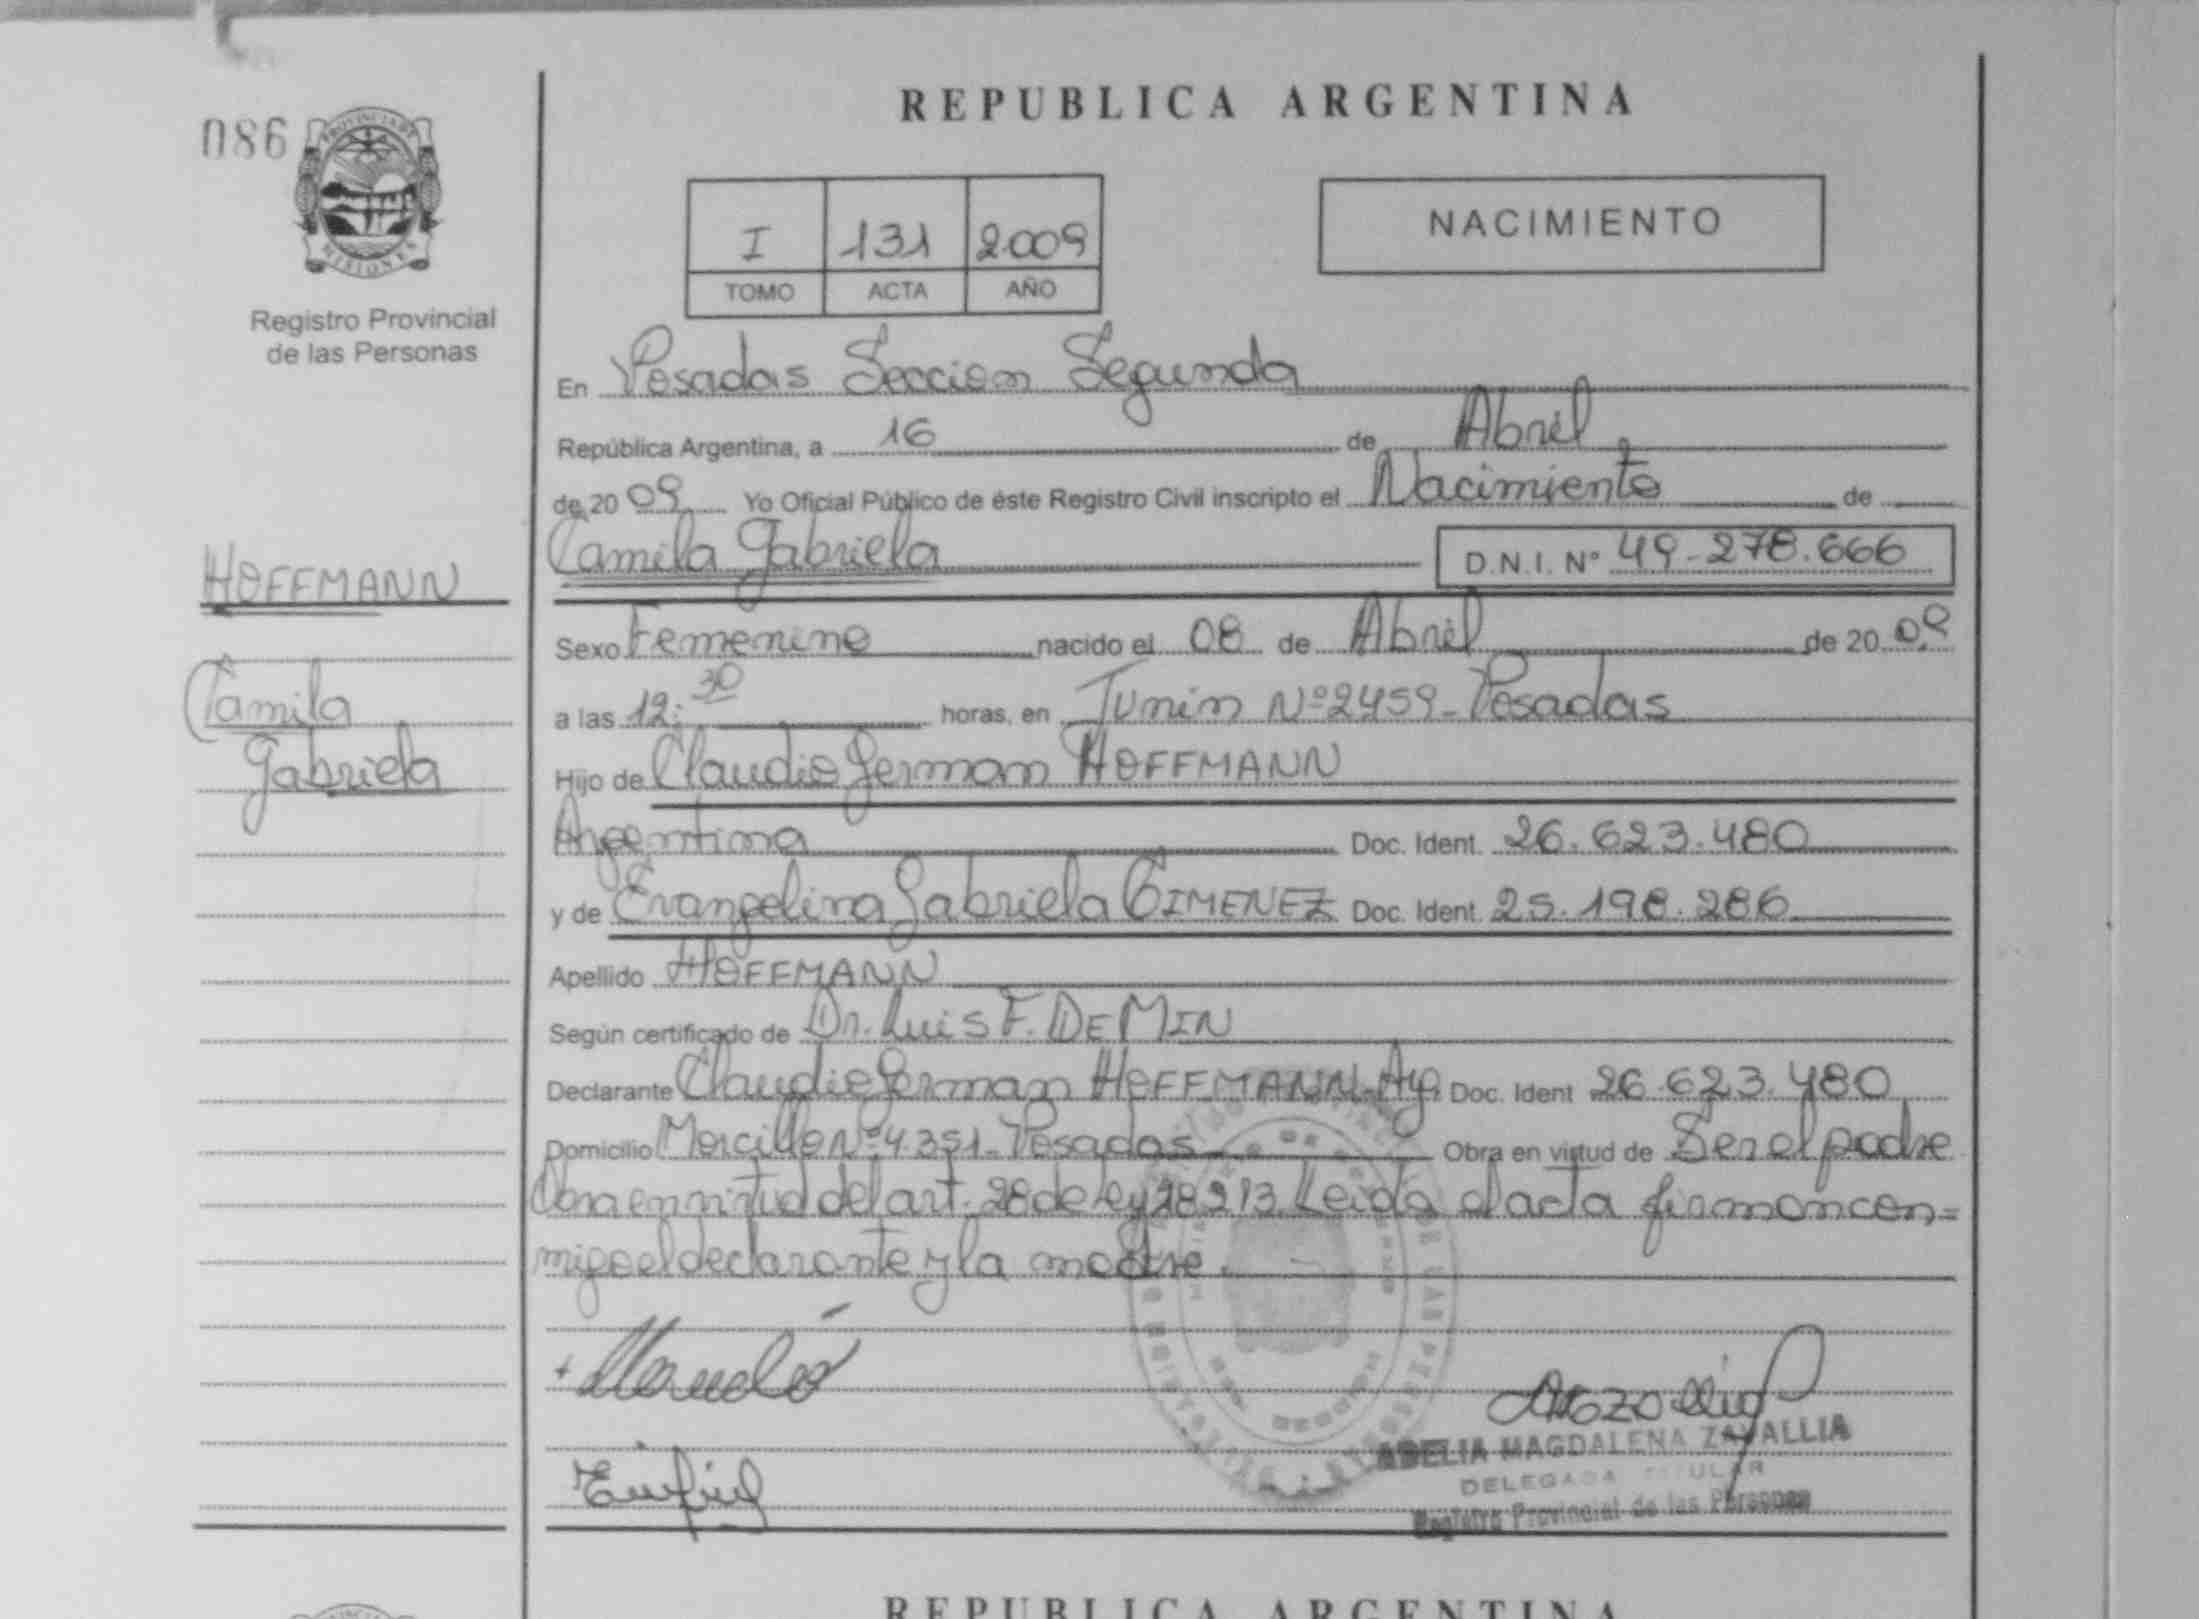 REPUBLICA ARGENTINA
086
PROVINCIA DE
MISIONES
Registro Provincial
de las Personas
I 131 2009
TOMO ACTA AÑO
NACIMIENTO
En Posadas Seccion Segunda
República Argentina, a 16 de Abril
de 2009 Yo Oficial Público de éste Registro Civil inscripto el Nacimiento de
Camila Gabriela D.N.I. Nº 49-278.666
HOFFMANN
Camila
Gabriela
Sexo Femenino nacido el 08 de Abril de 2009
a las 12:30 horas, en Junin Nº 2459-Posadas
Hijo de Claudio German HOFFMANN
Argentina Doc. Ident. 26.623.480
y de Evangelina Gabriela GIMENEZ Doc. Ident. 25.198.286
Apellido HOFFMANN
Según certificado de Dr. Luis F. DE MIN
Declarante Claudio German HOFFMANN-Arg. Doc. Ident 26.623.480
Domicilio Morcillo Nº 4.351-Posadas Obra en virtud de Ser el padre
Obra en virtud del art. 28 de ley 18213. Leida el acta firman con=
migo el declarante y la madre.
ADELIA MAGDALENA ZAVALLIA
DELEGADA TITULAR
Registro Provincial de las Personas
REPUBLICA ARGENTINA